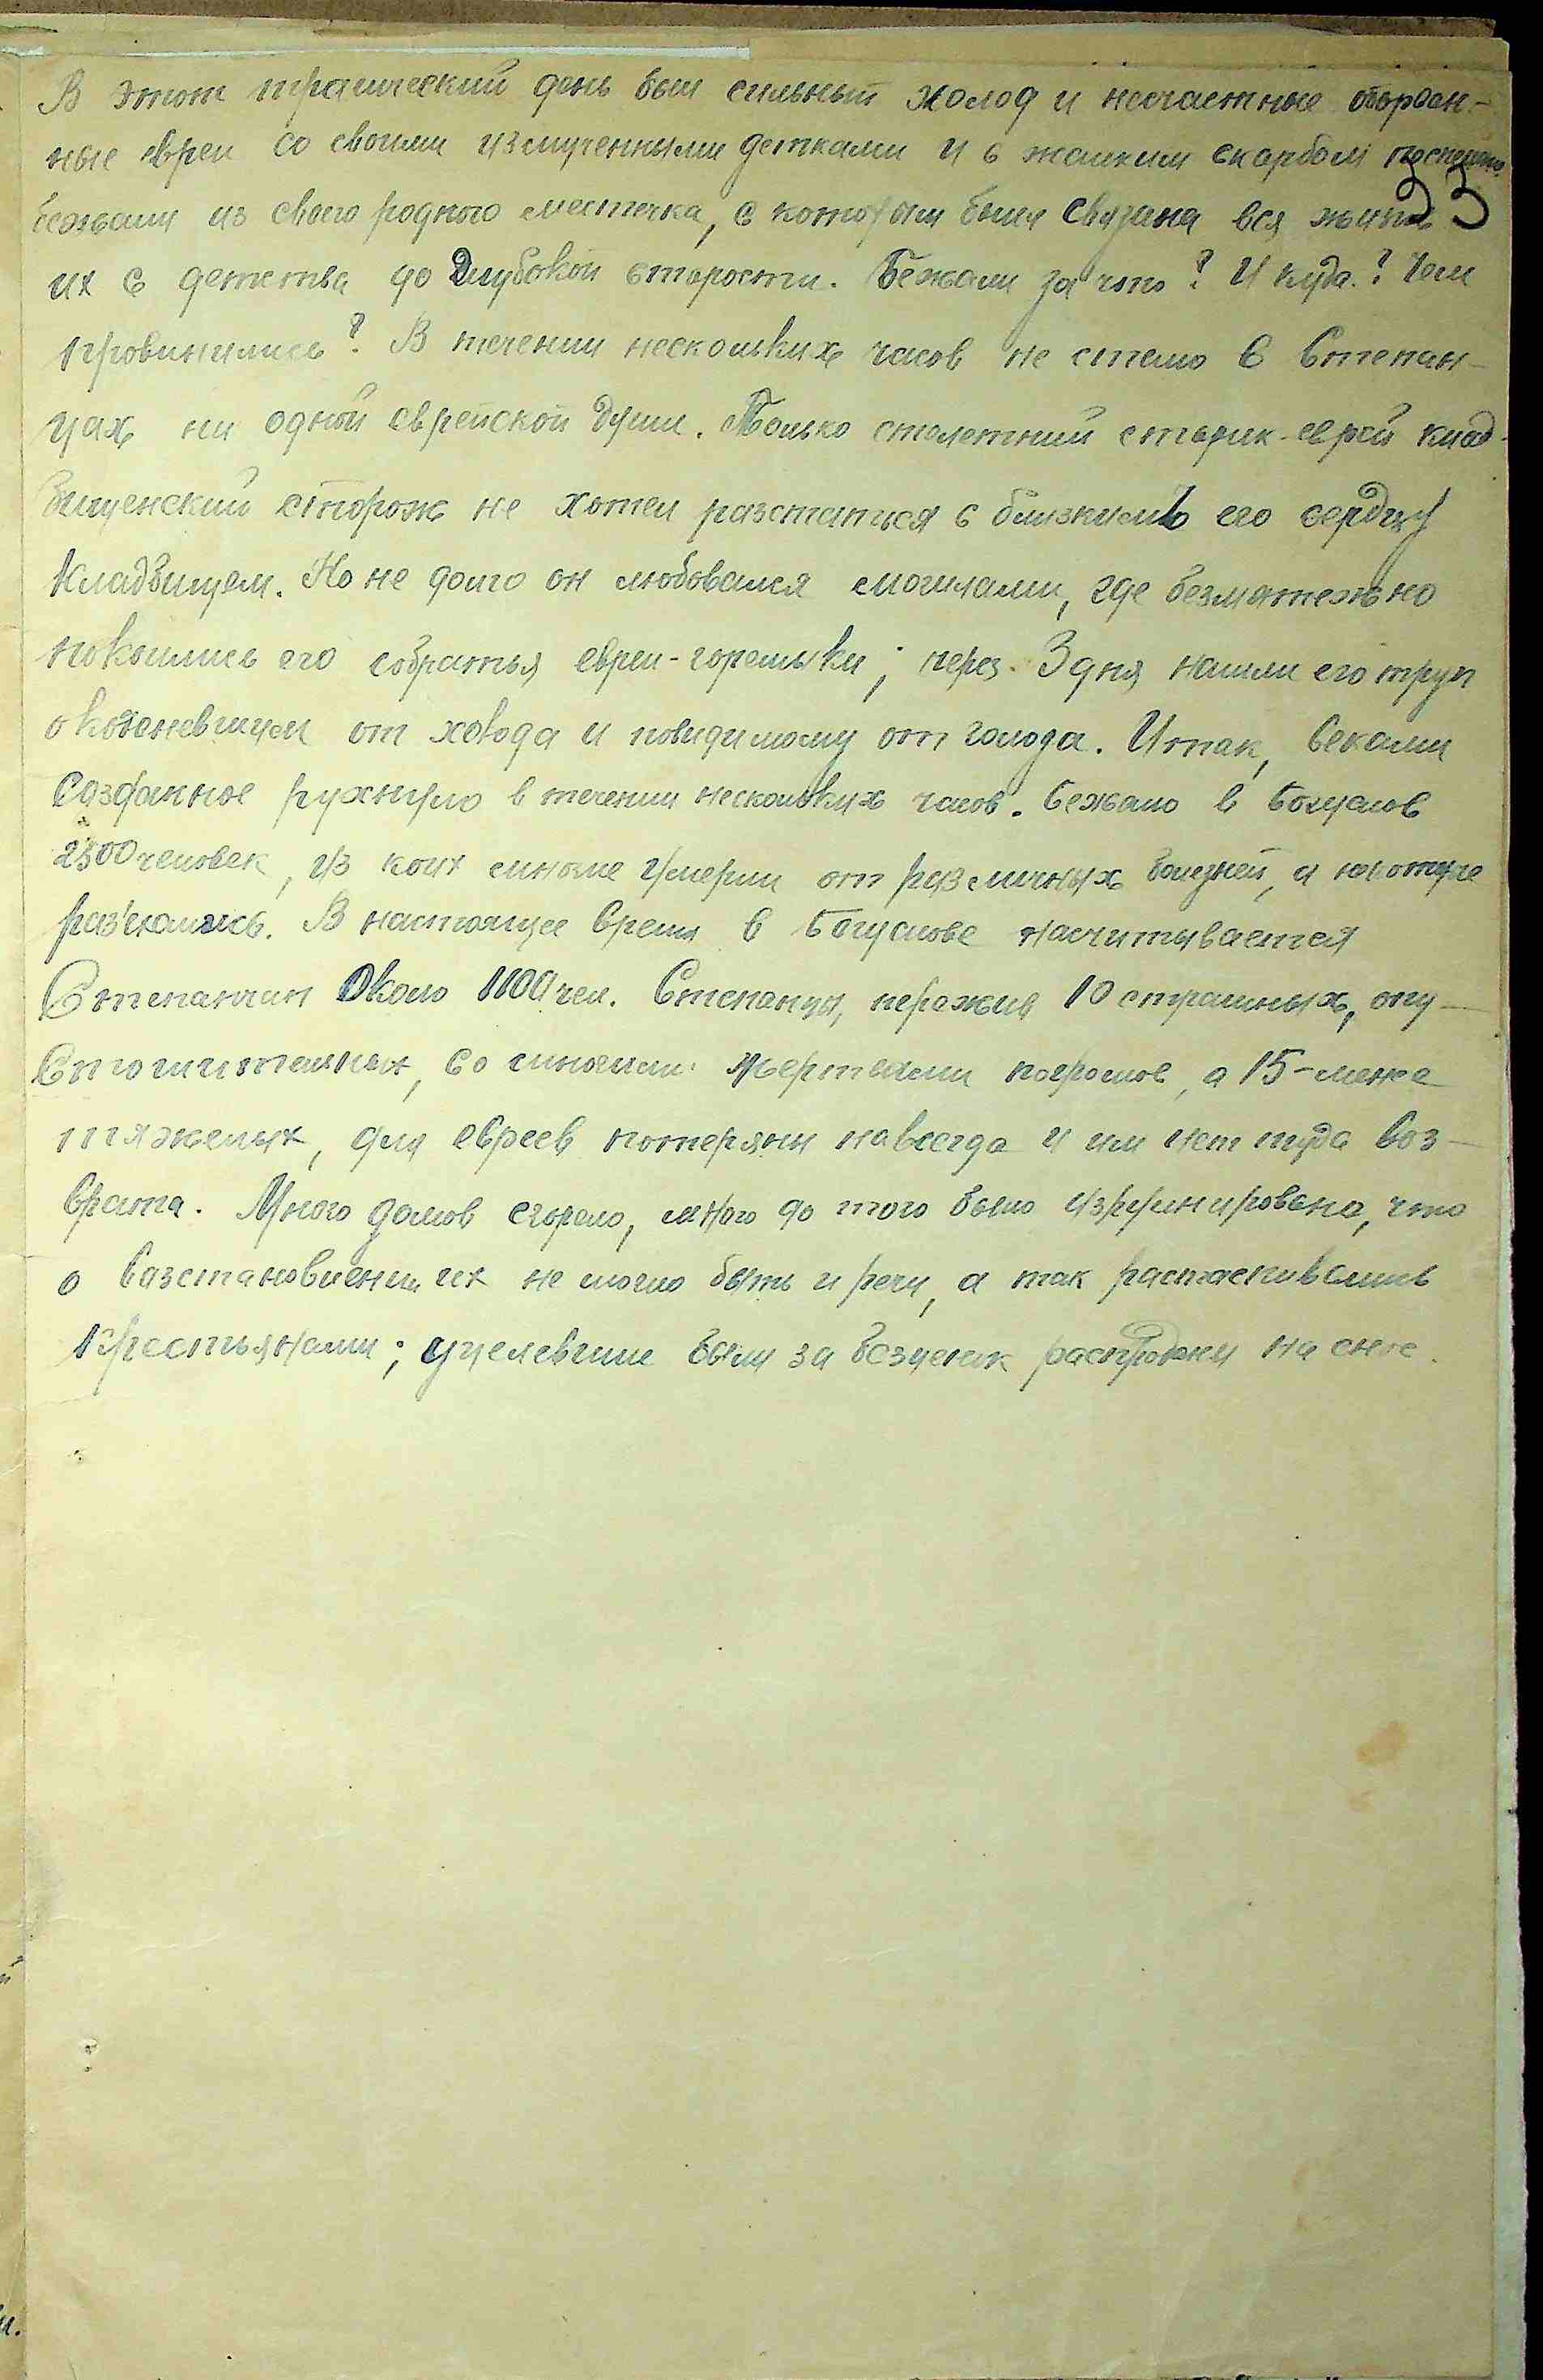 В этот трагический день был сильный холод и несчастные оборван-
ные евреи со своими измученными детками и с жалким скарбом поспешно
33
бежали из своего родного местечка, с которым была связана вся жизнь
их с детства до глубокой старости. Бежали за что? И куда? Чем
провинились? В течении нескольких часов не стало в Степан-
цах ни одной еврейской души. Только столетний старик-еврей клад-
бищенский сторож не хотел разстаться с близким его сердцу
кладбищем. Но не долго он любовался могилами, где безмятежно
покоились его собратья евреи-горемыки; через 3 дня нашли его труп
окоченевшим от холода и повидимому от голода. Итак, веками
созданное рухнуло в течении нескольких часов. Бежало в Богуслов
2500 человек, из коих многие умерли от различных болезней, а некоторые
раз'ехались. В настоящее время в Богуслове насчитывается
Степанчан около 1100 чел. Степанцы, пережив 10 страшных, опу-
стошительных, со многими жертвами погромов, а 15-менее
тяжелых, для евреев потеряны навсегда и им нет туда воз-
врата. Много домов сгорело, много до того было изруинировано, что
о возстановлении их не могло быть и речи, а так растаскивались
крестьянами; уцелевшие были за безценок распроданы на снос.